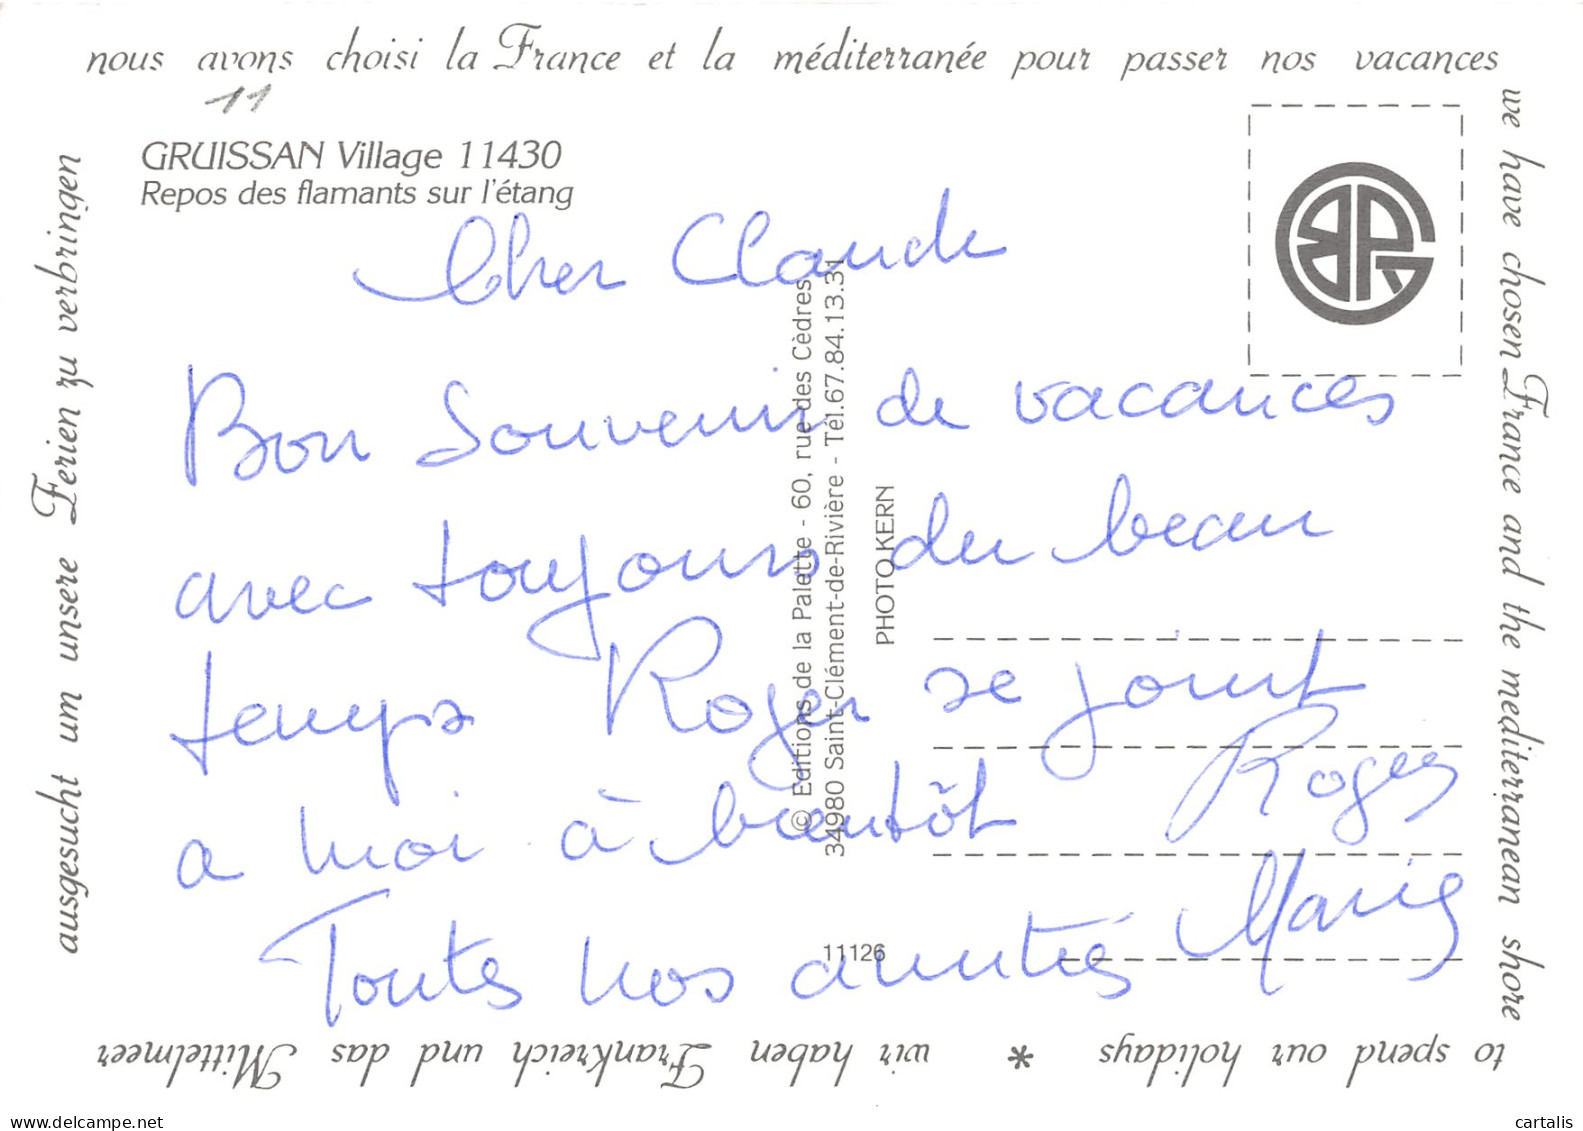 nous avons choisi la France et la méditerranée pour passer nos vacances
we have chosen France and the mediterranean shore
to spend our holidays * wir haben Frankreich und das Mittelmeer
ausgesucht um unsere Ferien zu verbringen
11
GRUISSAN Village 11430
Repos des flamants sur l'étang
Cher Claude
Bon Souvenir de vacances
avec toujours du beau
temps Roger se joint
a moi à bientôt Roger
Toutes nos amitiés Marie
© Editions de la Palette - 60, rue des Cèdres
34980 Saint-Clément-de-Rivière - Tél.67.84.13.31
PHOTO KERN
11126
www.delcampe.net
cartalis